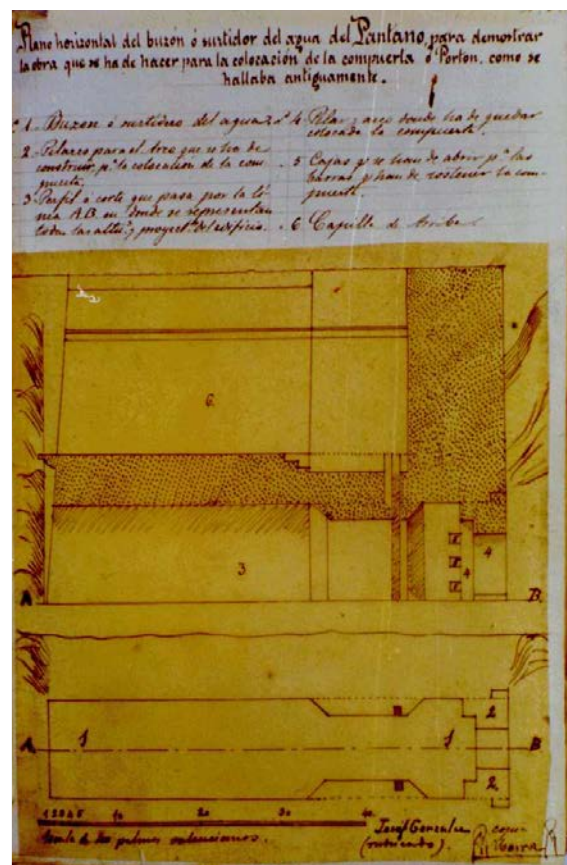 Plano horizontal del buzón ó surtidor del agua del Pantano, para demostrar
la obra que se ha de hacer para la colocación de la compuerta ó Porton, como se
hallaba antiguamente.
1. Buzon ó surtidero del agua
2. Pilares para el Arco que se ha de
construir, pª la colocacion de la com
puerta.
3. Perfil ó corte que pasa por la li
nea A.B. en donde se representan
todas las altª y proyectº del edificio.
4. Pilar y arco donde ha de quedar
colocada la compuerta.
5 Cajas q se han de abrir pª las
barras q han de sostener la com
puerta.
6. Capilla de Arriba
6.
3
4
4
A B.
2
A 1 1 B
2.
1 2 3 4 5 10 20 30 40
Escala de dos palmos valencianos.
Josef Gonzalez
(rubricado).
copia
Ibarra